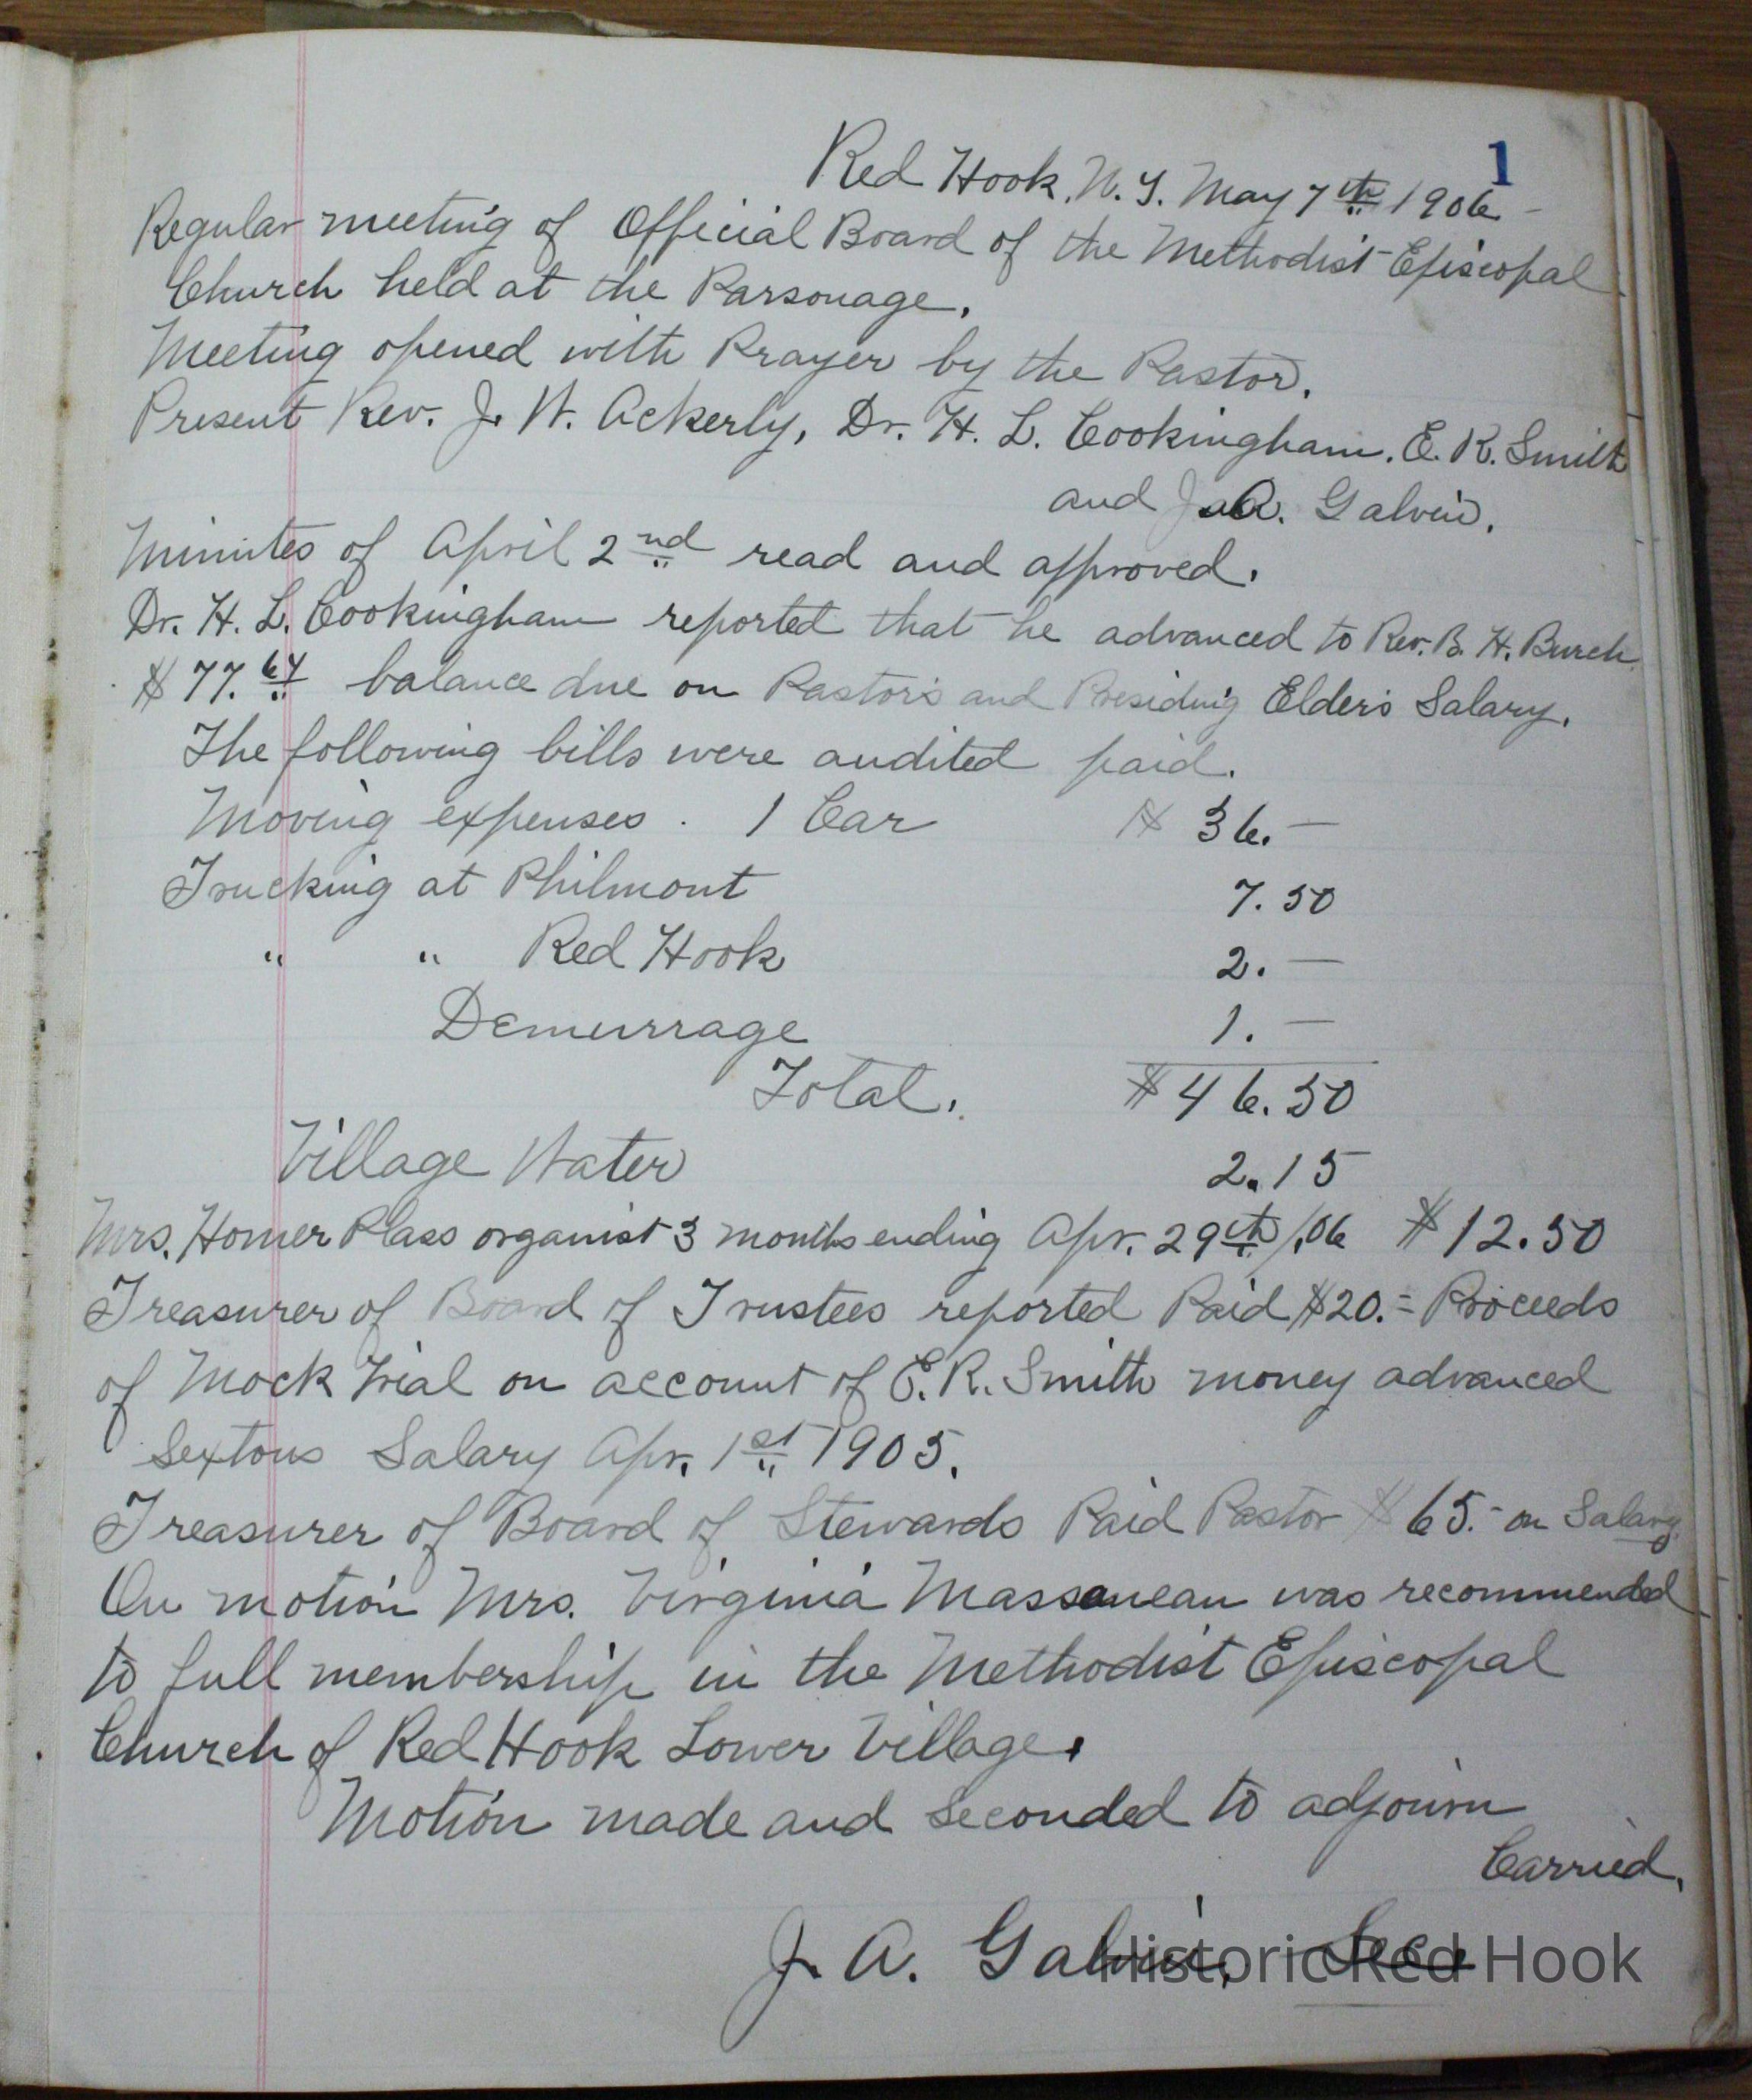 1
Red Hook, N.Y. May 7th 1906 -
Regular meeting of Official Board of the Methodist Episcopal
Church held at the Parsonage.
Meeting opened with Prayer by the Pastor.
Present Rev. J. W. Ackerly, Dr. H. L. Cookingham, E. R. Smith
and J. A. Galvin.
Minutes of April 2nd read and approved.
Dr. H. L. Cookingham reported that he advanced to Rev. B. H. Burch
$77.64 balance due on Pastor's and Presiding Elder's Salary.
The following bills were audited paid.
Moving expenses. 1 Car $36.—
Trucking at Philmont 7.50
" " Red Hook 2.—
Demurrage 1.—
Total. $46.50
Village Water 2.15
Mrs. Homer Plass organist 3 months ending Apr. 29th/.06 $12.50
Treasurer of Board of Trustees reported Paid $20.= Proceeds
of Mock Trial on account of E. R. Smith money advanced
Sextons Salary Apr. 1st 1905.
Treasurer of Board of Stewards Paid Pastor $65.- on Salary.
On motion Mrs. Virginia Massoneau was recommended
to full membership in the Methodist Episcopal
Church of Red Hook Lower Village.
Motion made and seconded to adjourn
Carried.
J. A. Galvin, Sec.
Historic Red Hook